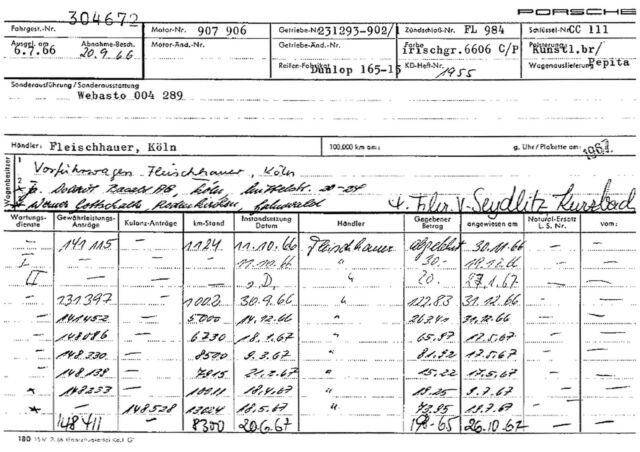 304672 PORSCHE
Fahrgest.-Nr. Motor-Nr. 907 906 Getriebe-Nr. 231293-902/1 Zündschloß-Nr. FL 984 Schlüssel-Nr. CC 111
Ausgel. am 6.7.66 Abnahme-Besch. 20.9.66 Motor-Änd.-Nr. Getriebe-Änd.-Nr. Farbe irischgr.6606 C/P Polsterung Kunstl.br/
Reifen-Fabrikat Dunlop 165-15 KD-Heft-Nr. 1955 Wagenauslieferung Pepita
Sonderausführung / Sonderausstattung
Webasto 004 289
Händler: Fleischhauer, Köln 100,000 km am: g. Uhr / Plakette am: 1967
Wagenbesitzer
1 Vorführwagen Fleischhauer, Köln
2 Köln
Werner Gottschalk, Rodenkirchen, v. Seydlitz Kurzbad
Wartungsdienste Gewährleistungs-Anträge Kulanz-Anträge km-Stand Instandsetzung Datum Händler Gegebener Betrag angewiesen am Natural-Ersatz L. S. Nr. vom:
— 141 115 — 1124 11.10.66 Fleischhauer abgelehnt 30.11.66 — —
I — — — 11.10.66 " 30.- 19.12.66 — —
II — — — " 20. 27.1.67 — —
— 131397 — 1002 30.9.66 " 122.83 31.12.66 — —
— 141452 — 5000 14.12.66 " 31.12.66 — —
— 148086 — 6730 18.1.67 " 65.97 17.5.67 — —
— 148330 — 8500 9.3.67 " 81.92 17.5.67 — —
— 148138 — 7915 21.2.67 " 15.22 17.5.67 — —
148233 — 18.4.67 " 18.25 9.7.67 — —
— 148528 13024 18.5.67 " 73.95 18.7.67 — —
148411 8300 20.6.67 198-65 26.10.67
180